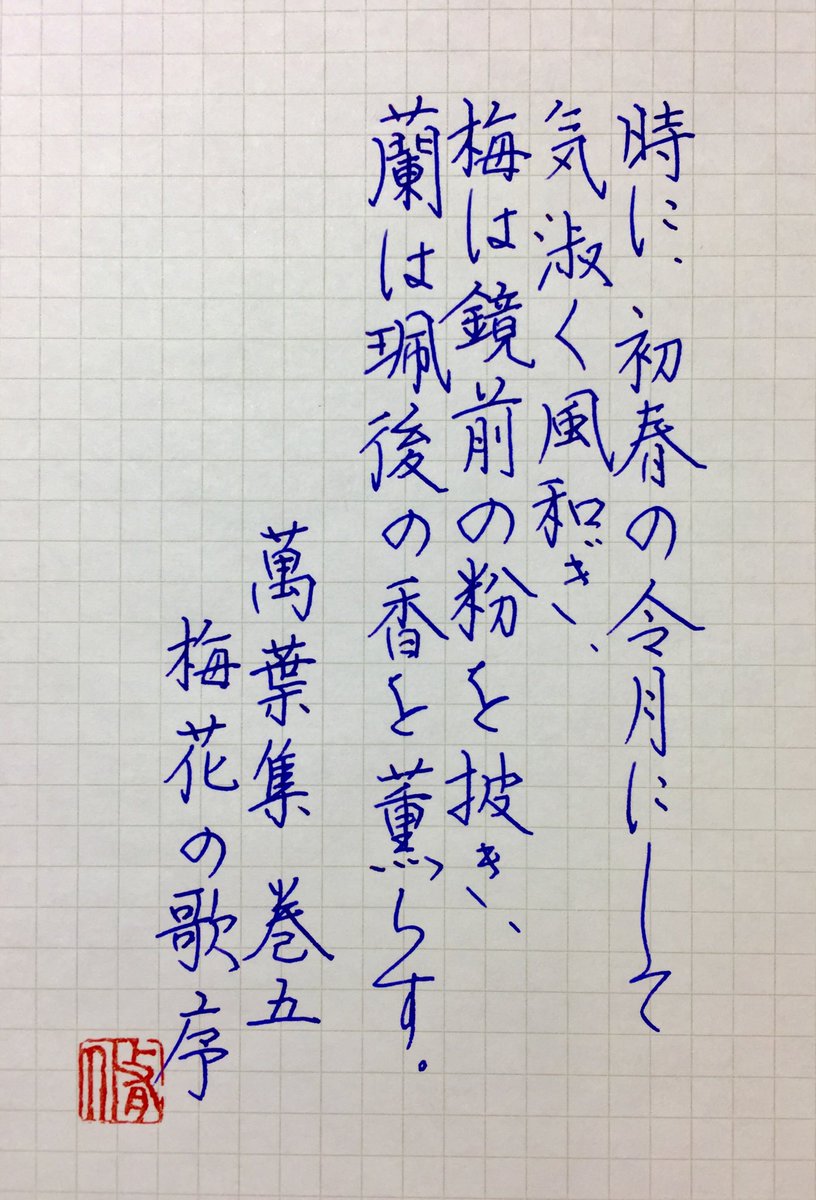 時に、初春の令月にして
気淑く風和ぎ、
梅は鏡前の粉を披き、
蘭は珮後の香を薫らす.
萬葉集 巻五
梅花の歌序